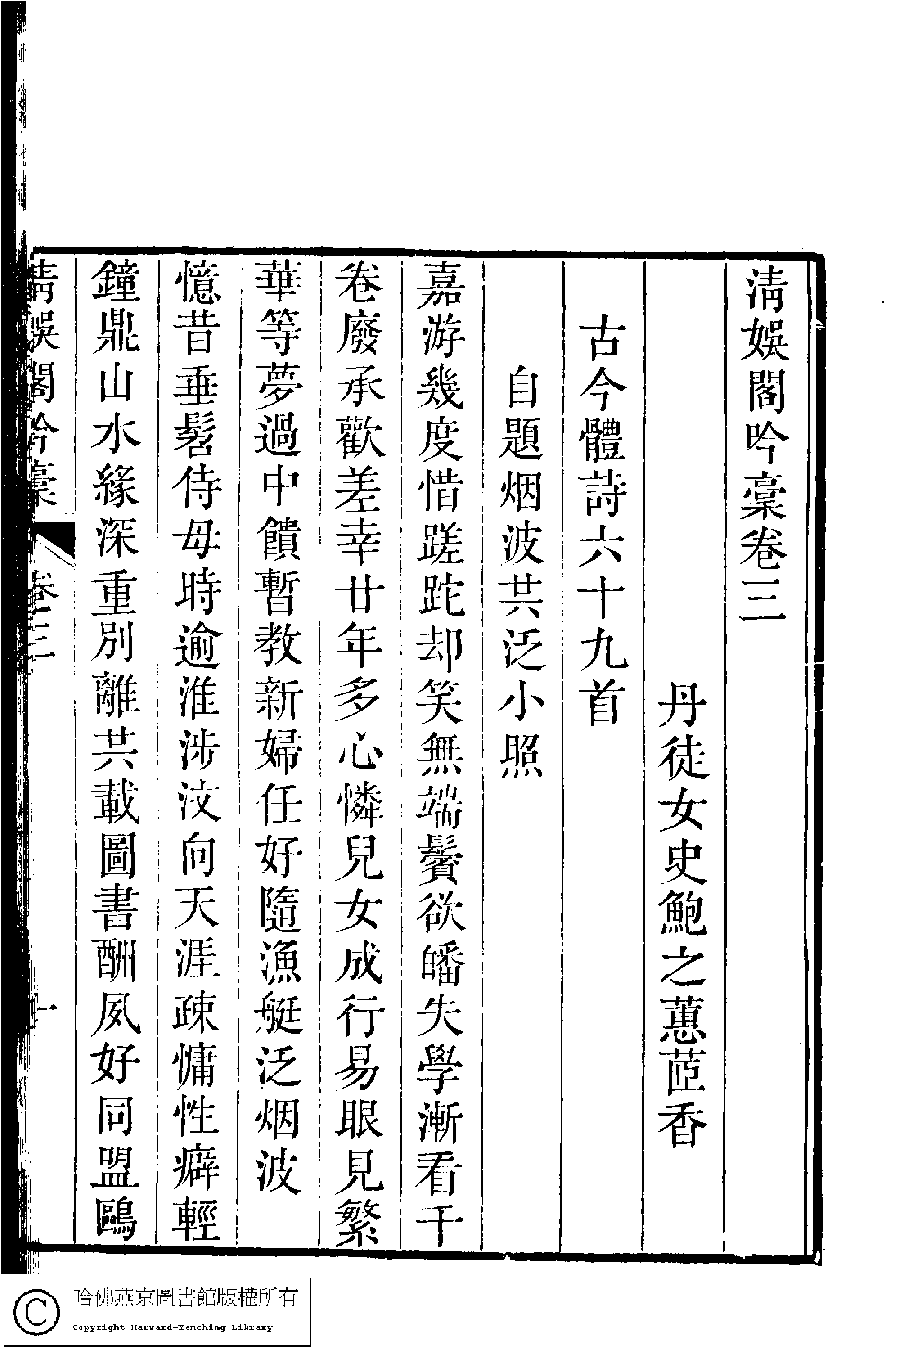 清娛閣吟稾卷三
丹徒女史鮑之蕙茝香
古今體詩六十九首
自題烟波共泛小照
嘉游幾度惜蹉跎却笑無端鬢欲皤失學漸看千
卷廢承歡差幸廿年多心憐兒女成行易眼見繁
華等夢過中饋暫教新婦任好隨漁艇泛烟波
憶昔垂髫侍母時逾淮涉汶向天涯疎慵性癖輕
鐘鼎山水緣深重別離共載圖書酬夙好同盟鷗
清娛閣吟稾
卷三
一
哈佛燕京圖書館版權所有
Copyright Harvard-Yenching Library